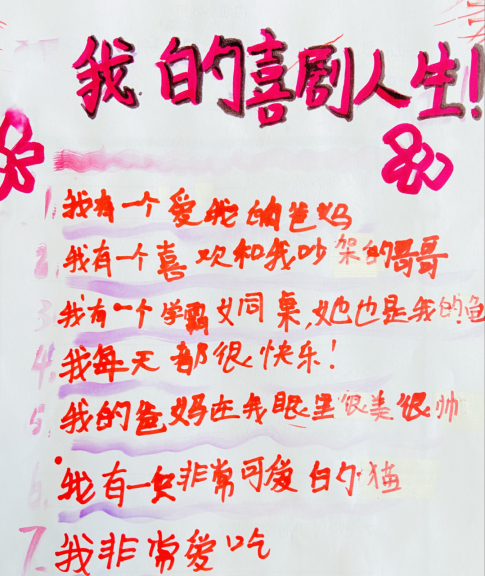 我的喜剧人生!
1. 我有一个爱我的爸妈
2. 我有一个喜欢和我吵架的哥哥
3. 我有一个学霸女同桌,她也是我的鱼
4. 我每天都很快乐!
5. 我的爸妈在我眼里很美很帅
6. 我有一只非常可爱的猫
7. 我非常爱吃